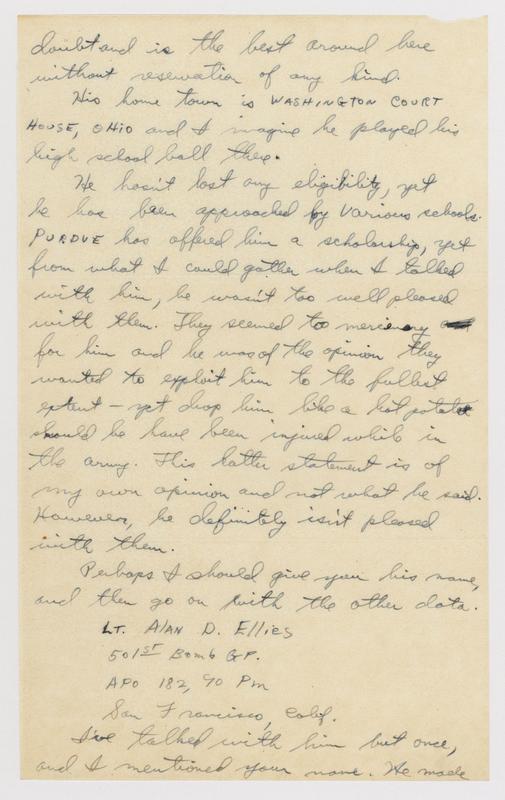 doubt and is the best around here
without reservation of any kind.
His home town is WASHINGTON COURT
HOUSE, OHIO and I imagine he played his
high school ball there.
He hasn't lost any eligibility, yet
he has been approached by various schools.
PURDUE has offered him a scholarship, yet
from what I could gather when I talked
with him, he wasn't too well pleased
with them. They seemed to mercenary
for him and he was of the opinion they
wanted to exploit him to the fullest
extent - yet drop him like a hot potato
should he have been injured while in
the army. This latter statement is of
my own opinion and not what he said.
However, he definitely isn't pleased
with them.
Perhaps I should give you his name,
and then go on with the other data.
LT. ALAN D. Ellies
501ST Bomb GP.
APO 182, % PM
San Francisco, Calif.
I've talked with him but once,
and I mentioned your name. He made